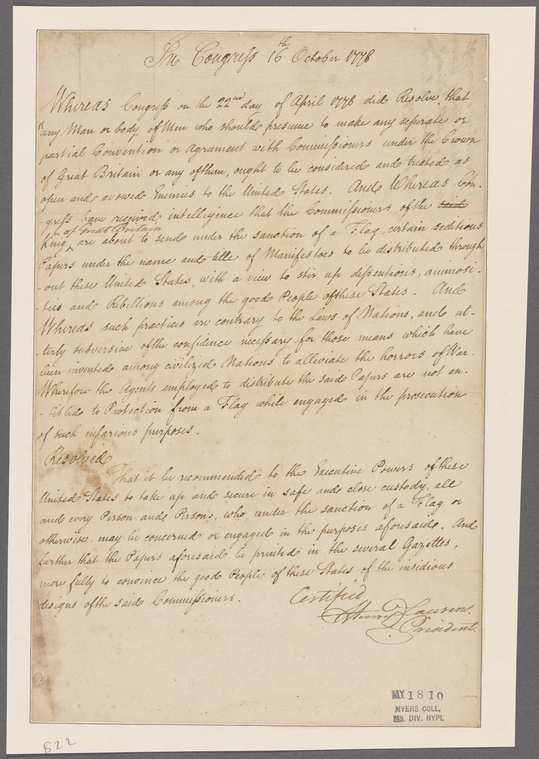 In Congress 16th October 1778
Whereas Congress on the 22nd day of April 1778 did Resolve, that
"any Man or body of Men who should presume to make any separate or
partial Convention or Agreement with Commissioners under the Crown
of Great Britain or any of them, ought to be considered and treated as
open and avowed Enemies to the United States. And Whereas Con-
-gress have received intelligence that the Commissioners of the said
of Great Britain
King, are about to send under the sanction of a Flag, certain seditious
Papers under the name and title of Manifestoes to be distributed through
-out these United States, with a view to stir up dissentions, animosi-
-ties and Rebellious among the good People of these States. And
Whereas such practices are contrary to the Laws of Nations, and ut-
-terly subversive of the confidence necessary for those means which have
been invented among civilized Nations to alleviate the horrors of War.
Wherefore the Agents employed to distribute the said Papers are not en-
-titled to Protection from a Flag while engaged in the prosecution
of such nefarious purposes.
Resolved
That it be recommended to the Executive Powers of these
United States to take up and secure in safe and close custody, all
and every Person and Persons, who, under the sanction of a Flag or
otherwise, may be concerned or engaged in the purposes aforesaid. And
further that the Papers aforesaid be printed in the several Gazettes,
more fully to convince the good People of these States of the insidious
designs of the said Commissioners.
Certified
Henry Laurens.
President.
MY 1810
MYERS COLL.
MS. DIV. NYPL
822